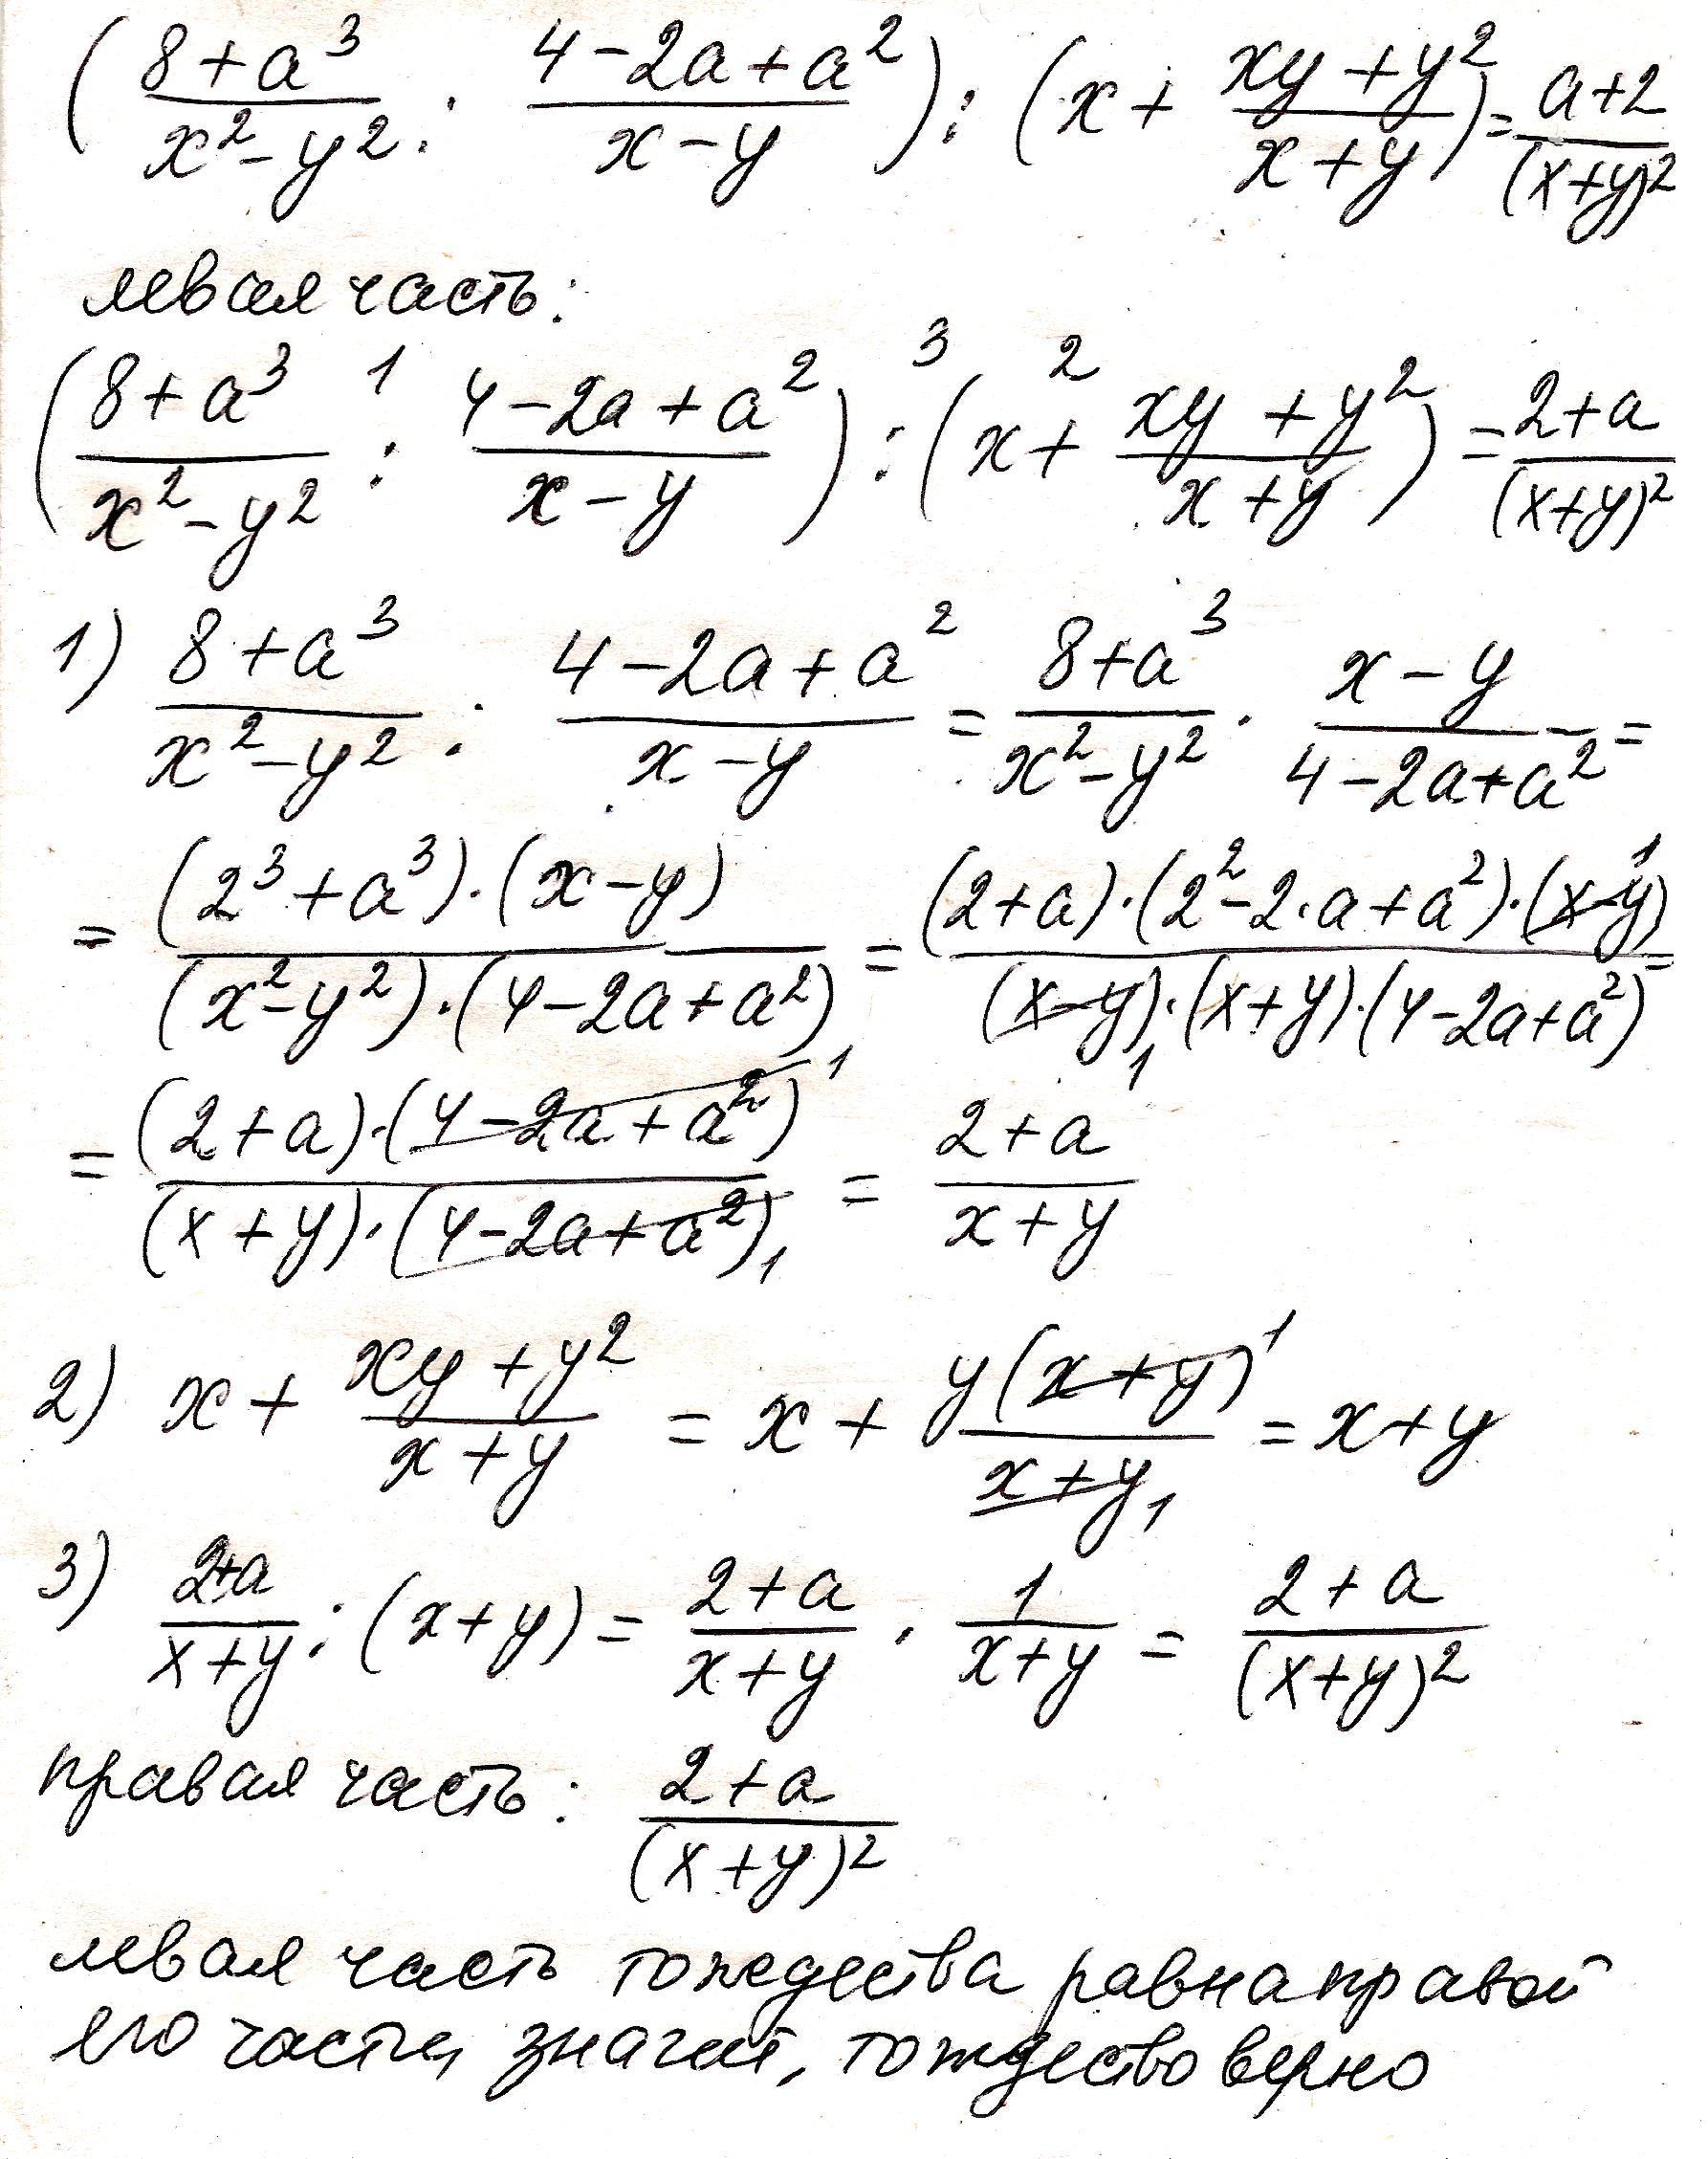 (8+a³/x²-y² : 4-2a+a²/x-y) : (x + xy+y²/x+y) = a+2/(x+y)²
левая часть:
(8+a³/x²-y² :¹ 4-2a+a²/x-y) :³ (x +² xy+y²/x+y) = 2+a/(x+y)²
1) 8+a³/x²-y² : 4-2a+a²/x-y = 8+a³/x²-y² · x-y/4-2a+a² =
= (2³+a³)·(x-y)/(x²-y²)·(4-2a+a²) = (2+a)·(2²-2·a+a²)·(x-y)¹/(x-y)₁·(x+y)·(4-2a+a²) =
= (2+a)·(4-2a+a²)¹/(x+y)·(4-2a+a²)₁ = 2+a/x+y
2) x + xy+y²/x+y = x + y(x+y)¹/x+y₁ = x+y
3) 2+a/x+y : (x+y) = 2+a/x+y · 1/x+y = 2+a/(x+y)²
правая часть: 2+a/(x+y)²
левая часть тождества равна правой
его части, значит, тождество верно